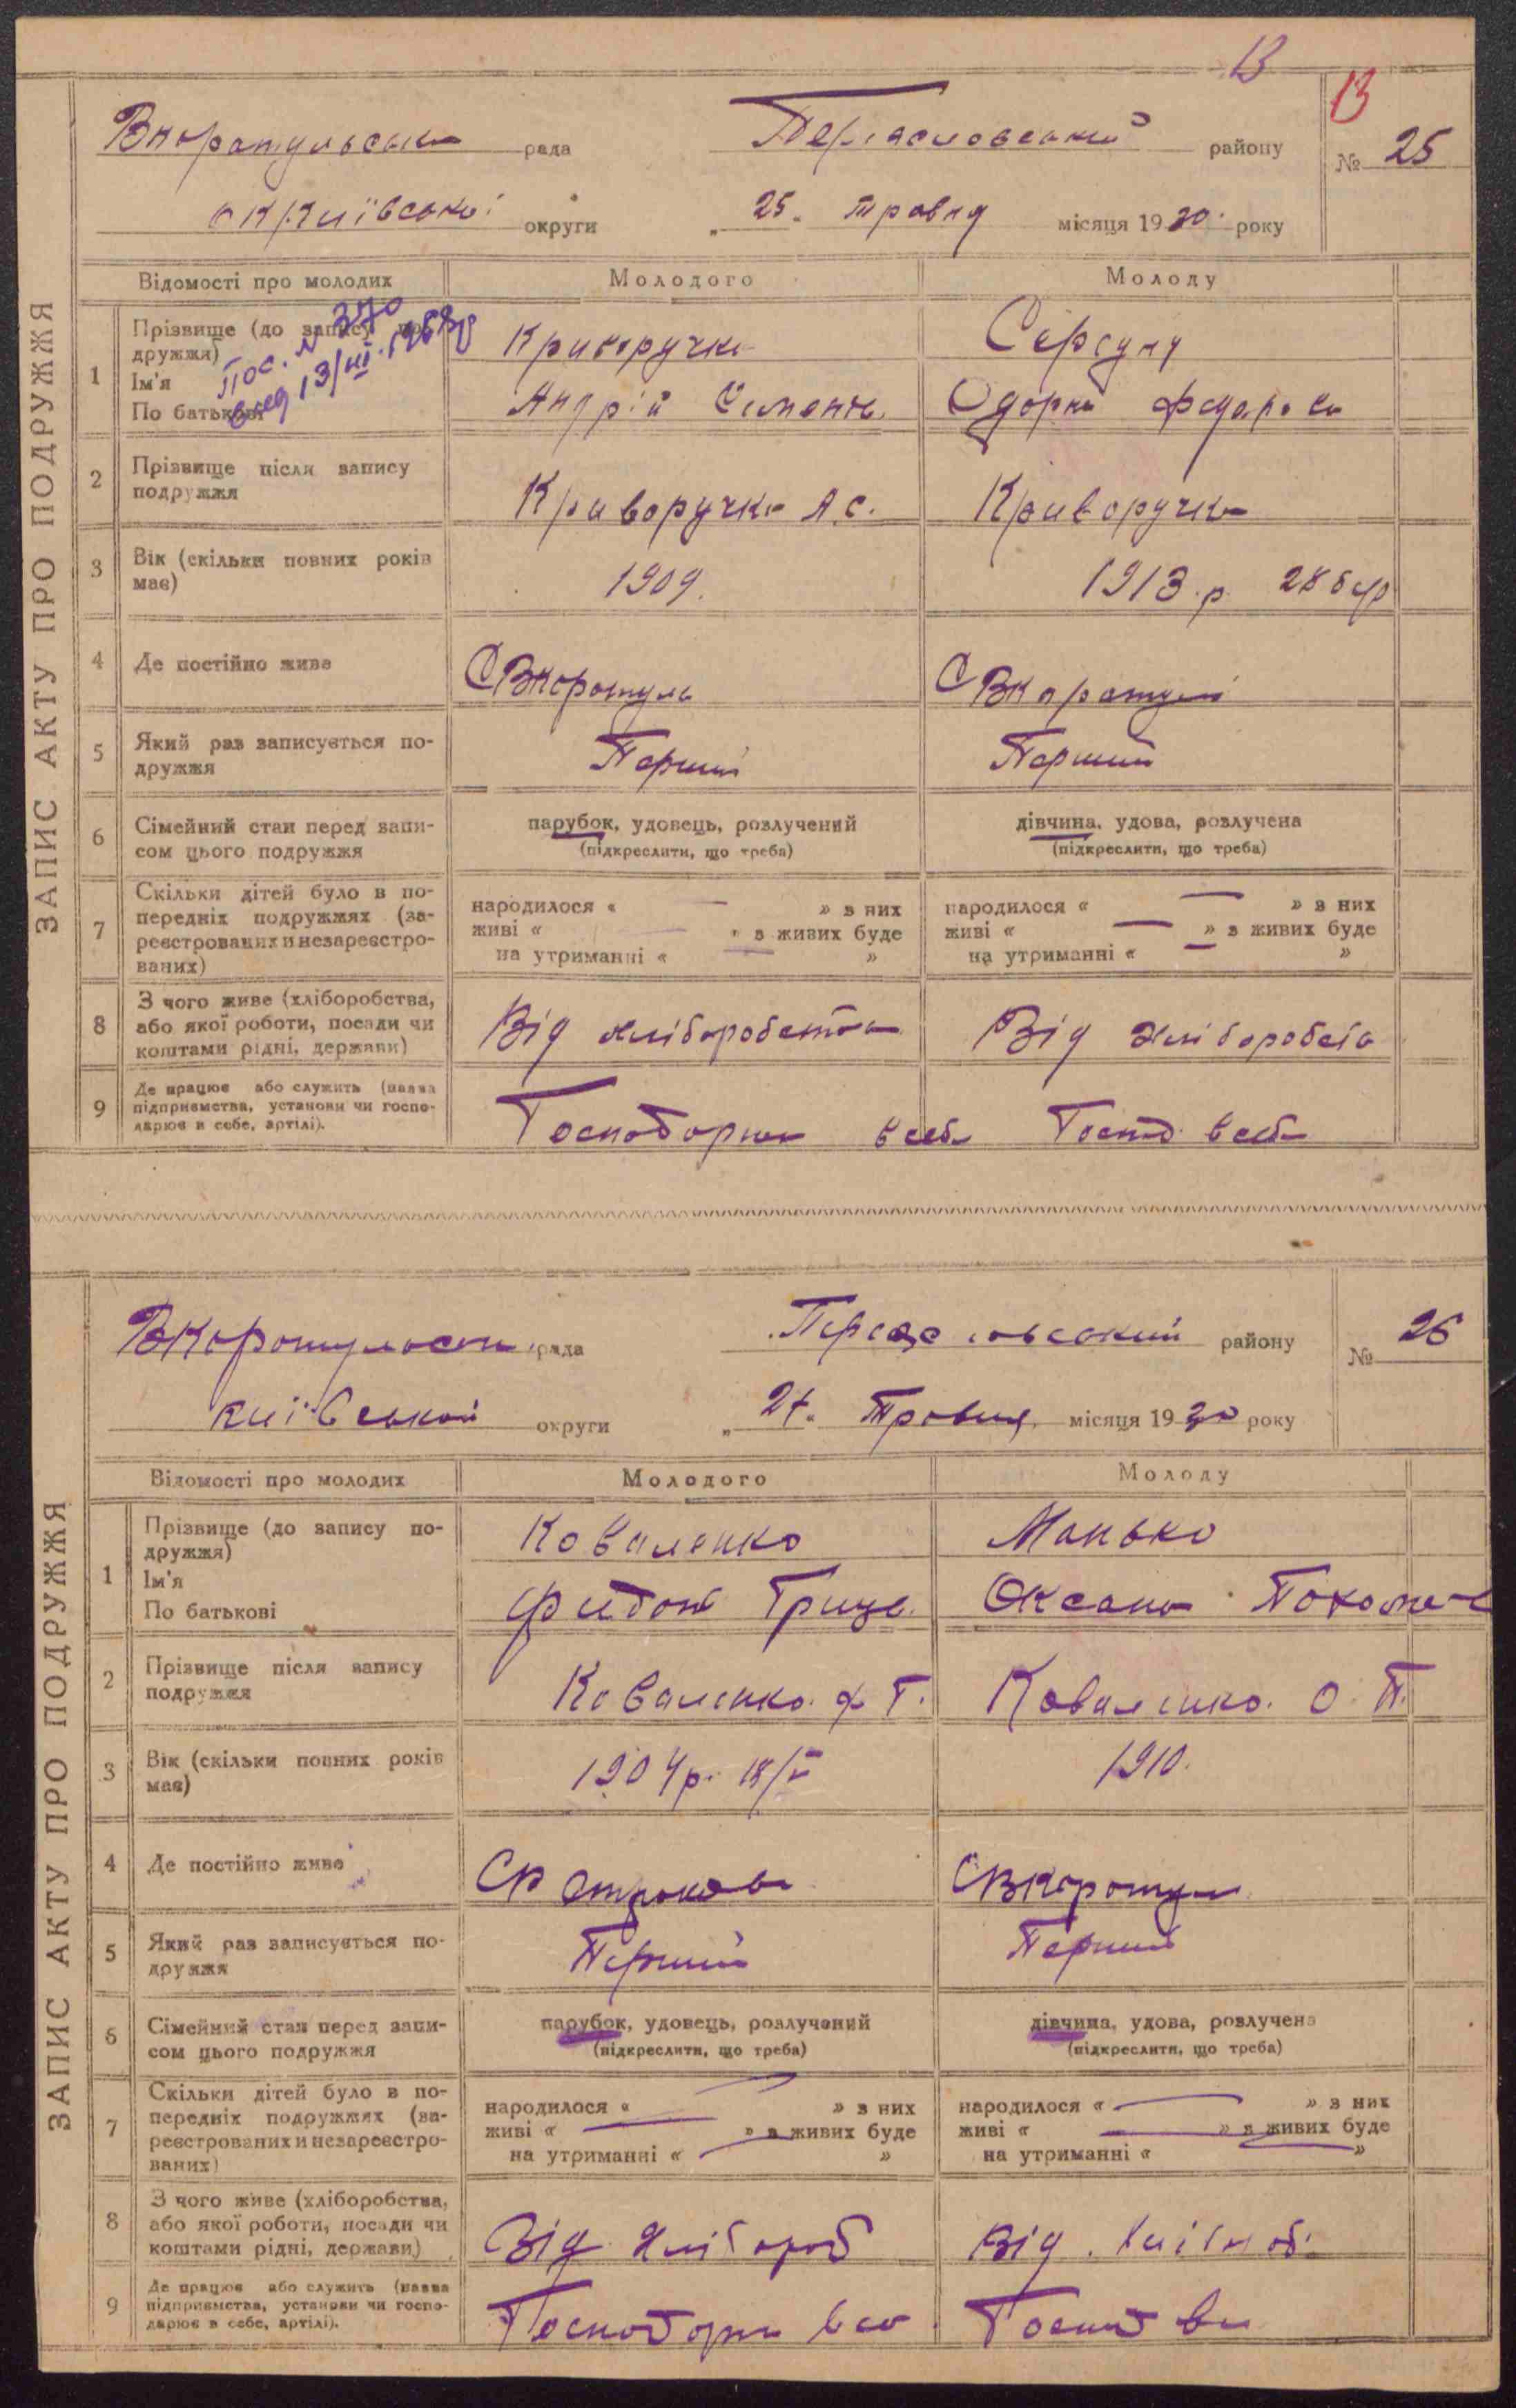 13
13
Вкоратульська рада Переяславський району № 25
Київської округи „ 25 „ травня місяця 1930 року
ЗАПИС АКТУ ПРО ПОДРУЖЖЯ
Відомості про молодих Молодого Молоду
1 Прізвище (до запису подружжя) Криворучко Сердуну
Ім'я
По батькові Андрій Семенов. Одарка Федоров
Пос. N 370
13/III.
2 Прізвище після запису подружжя Криворучко А.С. Криворучко
3 Вік (скільки повних років має) 1909. 1913.р.
4 Де постійно живе С Вкоратуль С Вкоратулі
5 Який раз записується подружжя Перший Перший
6 Сімейний стан перед записом цього подружжя парубок, удовець, розлучений дівчина, удова, розлучена
(підкреслити, що треба) (підкреслити, що треба)
7 Скільки дітей було в попередніх подружжях (зареєстрованих и незареєстрованих)
народилося « — » з них народилося « — » з них
живі « — » з живих буде живі « — » з живих буде
на утриманні « » на утриманні « »
8 З чого живе (хліборобства, або якої роботи, посади чи коштами рідні, держави) Від хліборобства Від хліборобства
9 Де працює або служить (назва підприємства, установи чи господарює в себе, артілі).
Господорює в себе Господ в себе
ВКоратульськ рада Переяславський району № 26
Київської округи „ 27 „ Травня місяця 1930 року
ЗАПИС АКТУ ПРО ПОДРУЖЖЯ
Відомості про молодих Молодого Молоду
1 Прізвище (до запису подружжя) Коваленко Манько
Ім'я
По батькові Филот Гриць. Оксана
2 Прізвище після запису подружжя Коваленко. Ф Г. Коваленко. О. П.
3 Вік (скільки повних років має) 1904р. 18/V 1910.
4 Де постійно живе С Строкова С Вкоратул
5 Який раз записується подружжя Перший Перший
6 Сімейний стан перед записом цього подружжя парубок, удовець, розлучений дівчина, удова, розлучена
(підкреслити, що треба) (підкреслити, що треба)
7 Скільки дітей було в попередніх подружжях (зареєстрованих и незареєстрованих)
народилося « — » з них народилося « — » з них
живі « — » з живих буде живі « — » з живих буде
на утриманні « — » на утриманні « — »
8 З чого живе (хліборобства, або якої роботи, посади чи коштами рідні, держави) Від хлібороб Від хлібороб.
9 Де працює або служить (назва підприємства, установи чи господарює в себе, артілі).
Господорю в се Господ в се